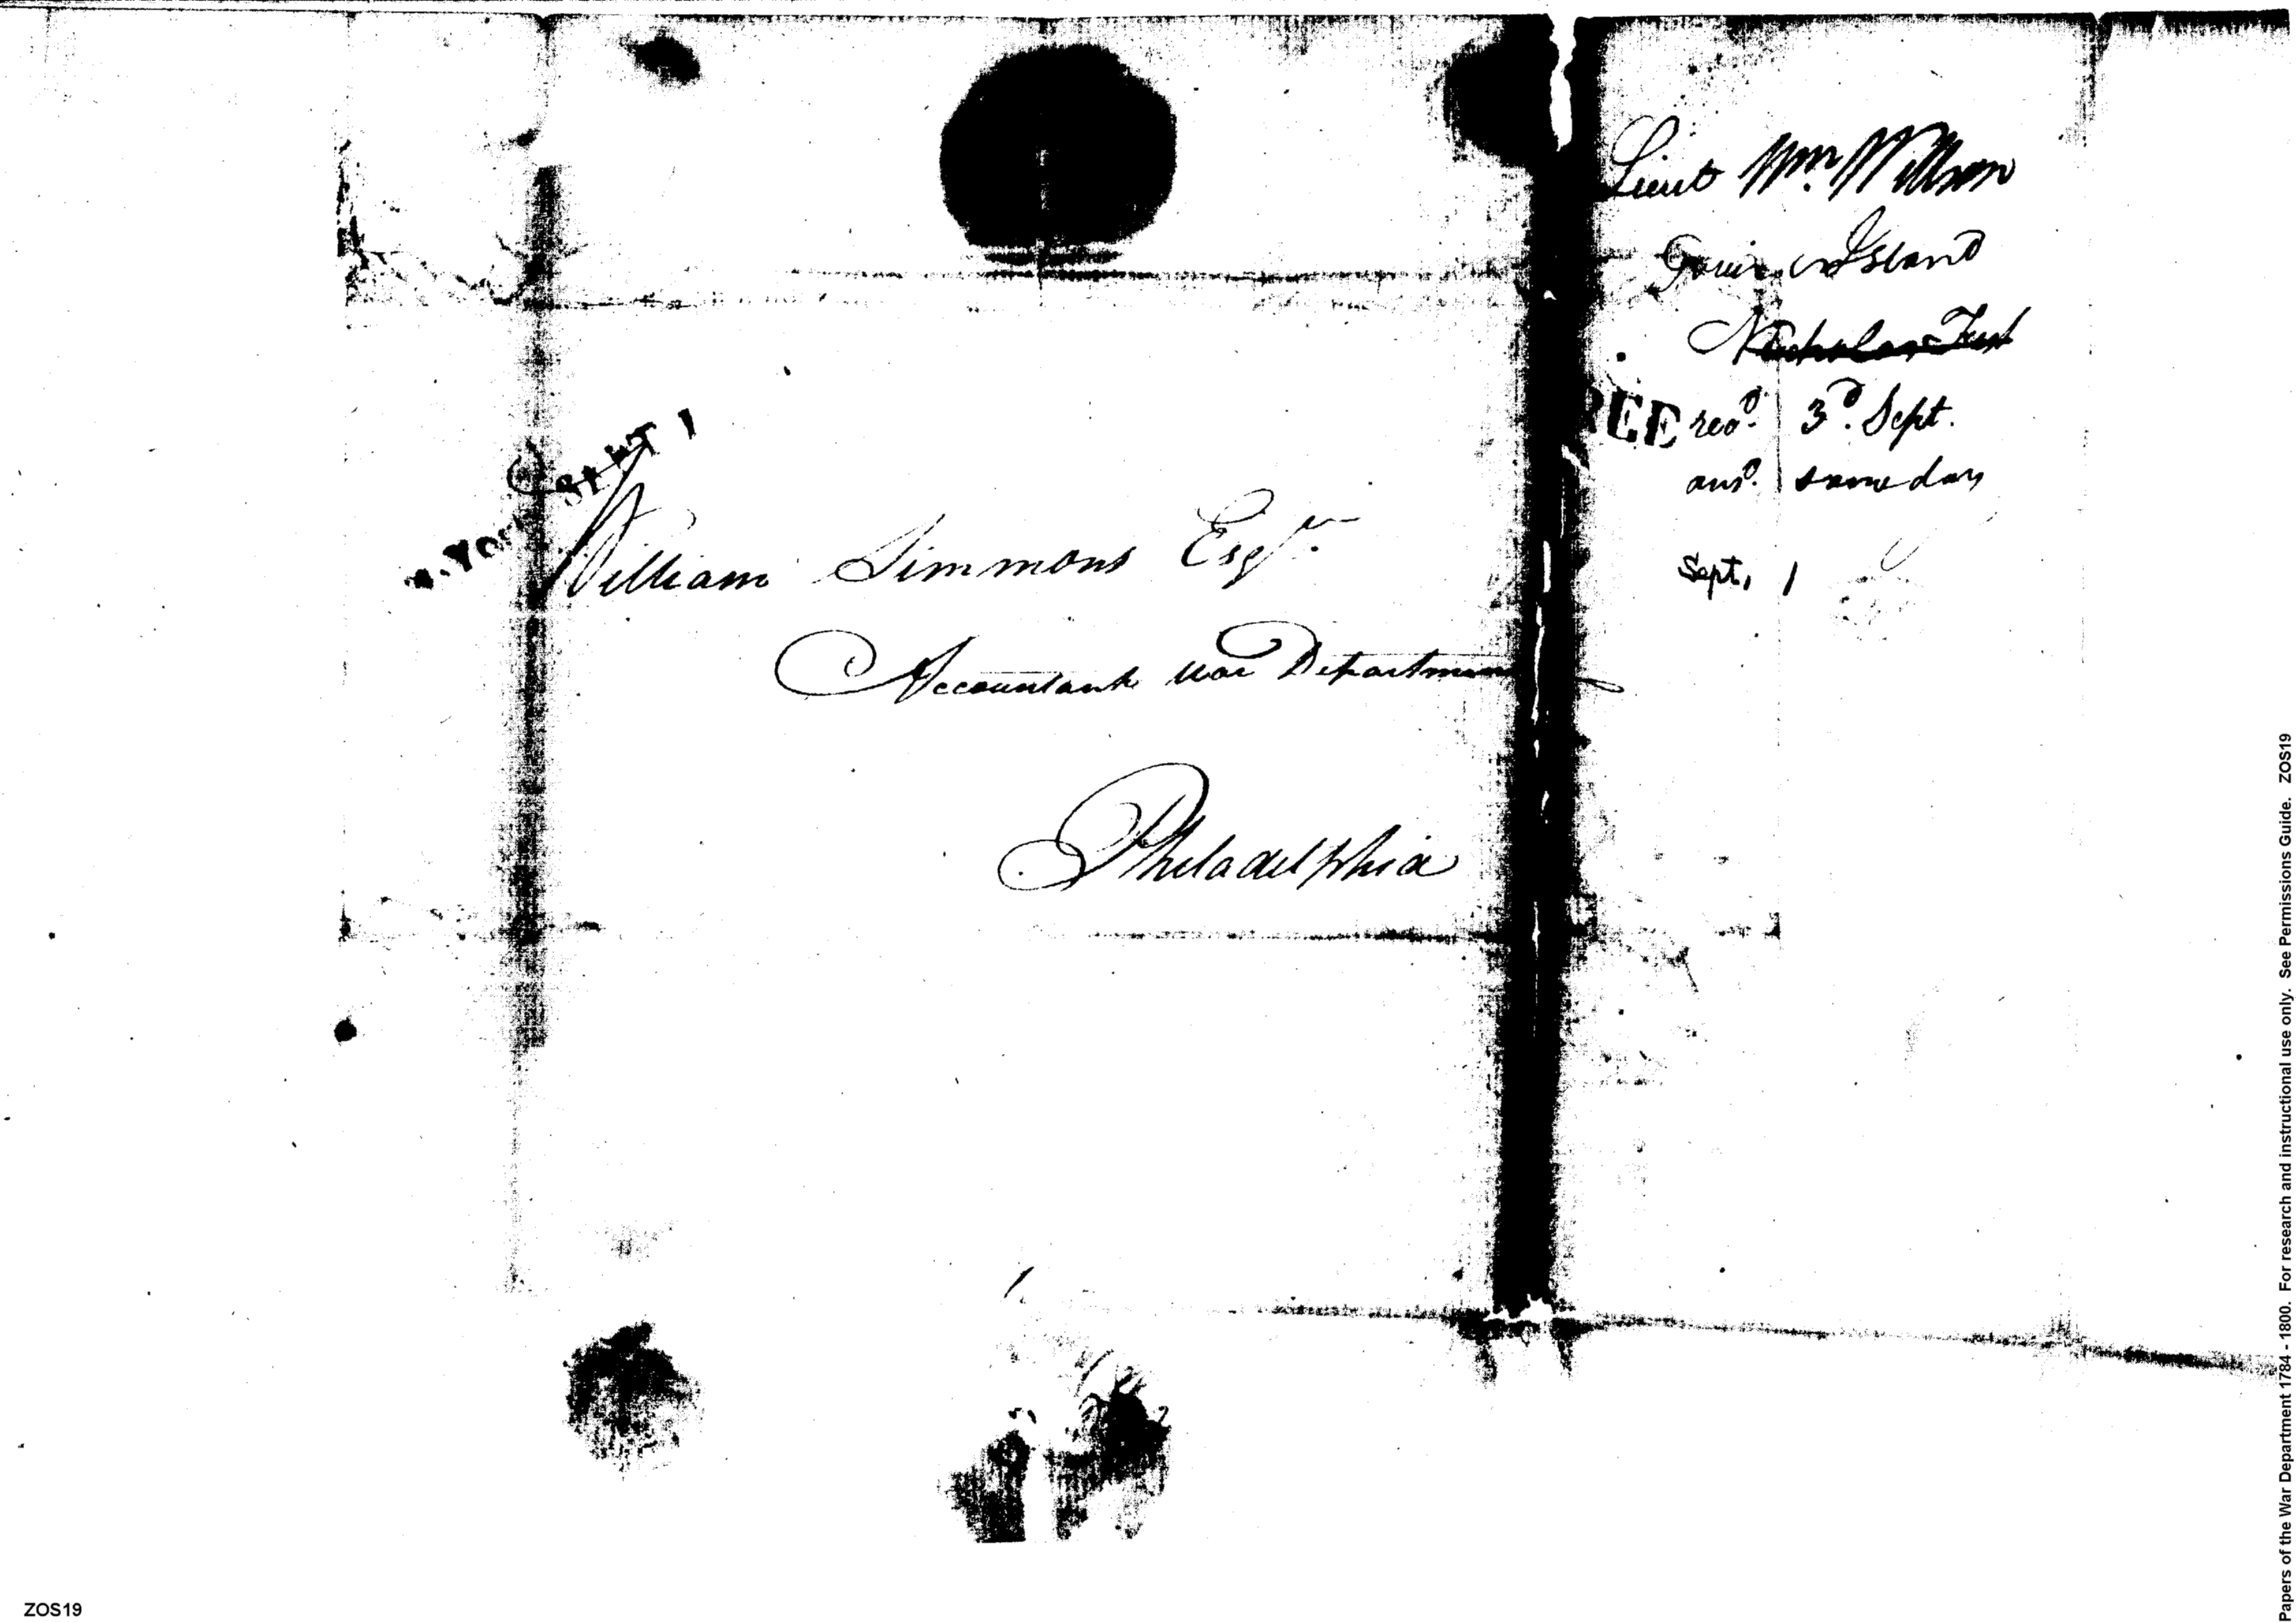 N. YORK SEPT 1
William Simmons Esqr.
Accountant War Department
Philadelphia
Lieut Wm. Willson
Island
Nicholas
FREE
recd. 3d. Sept.
ansd. same day
Sept. 1
ZOS19
Papers of the War Department 1784 - 1800. For research and instructional use only. See Permissions Guide. ZOS19